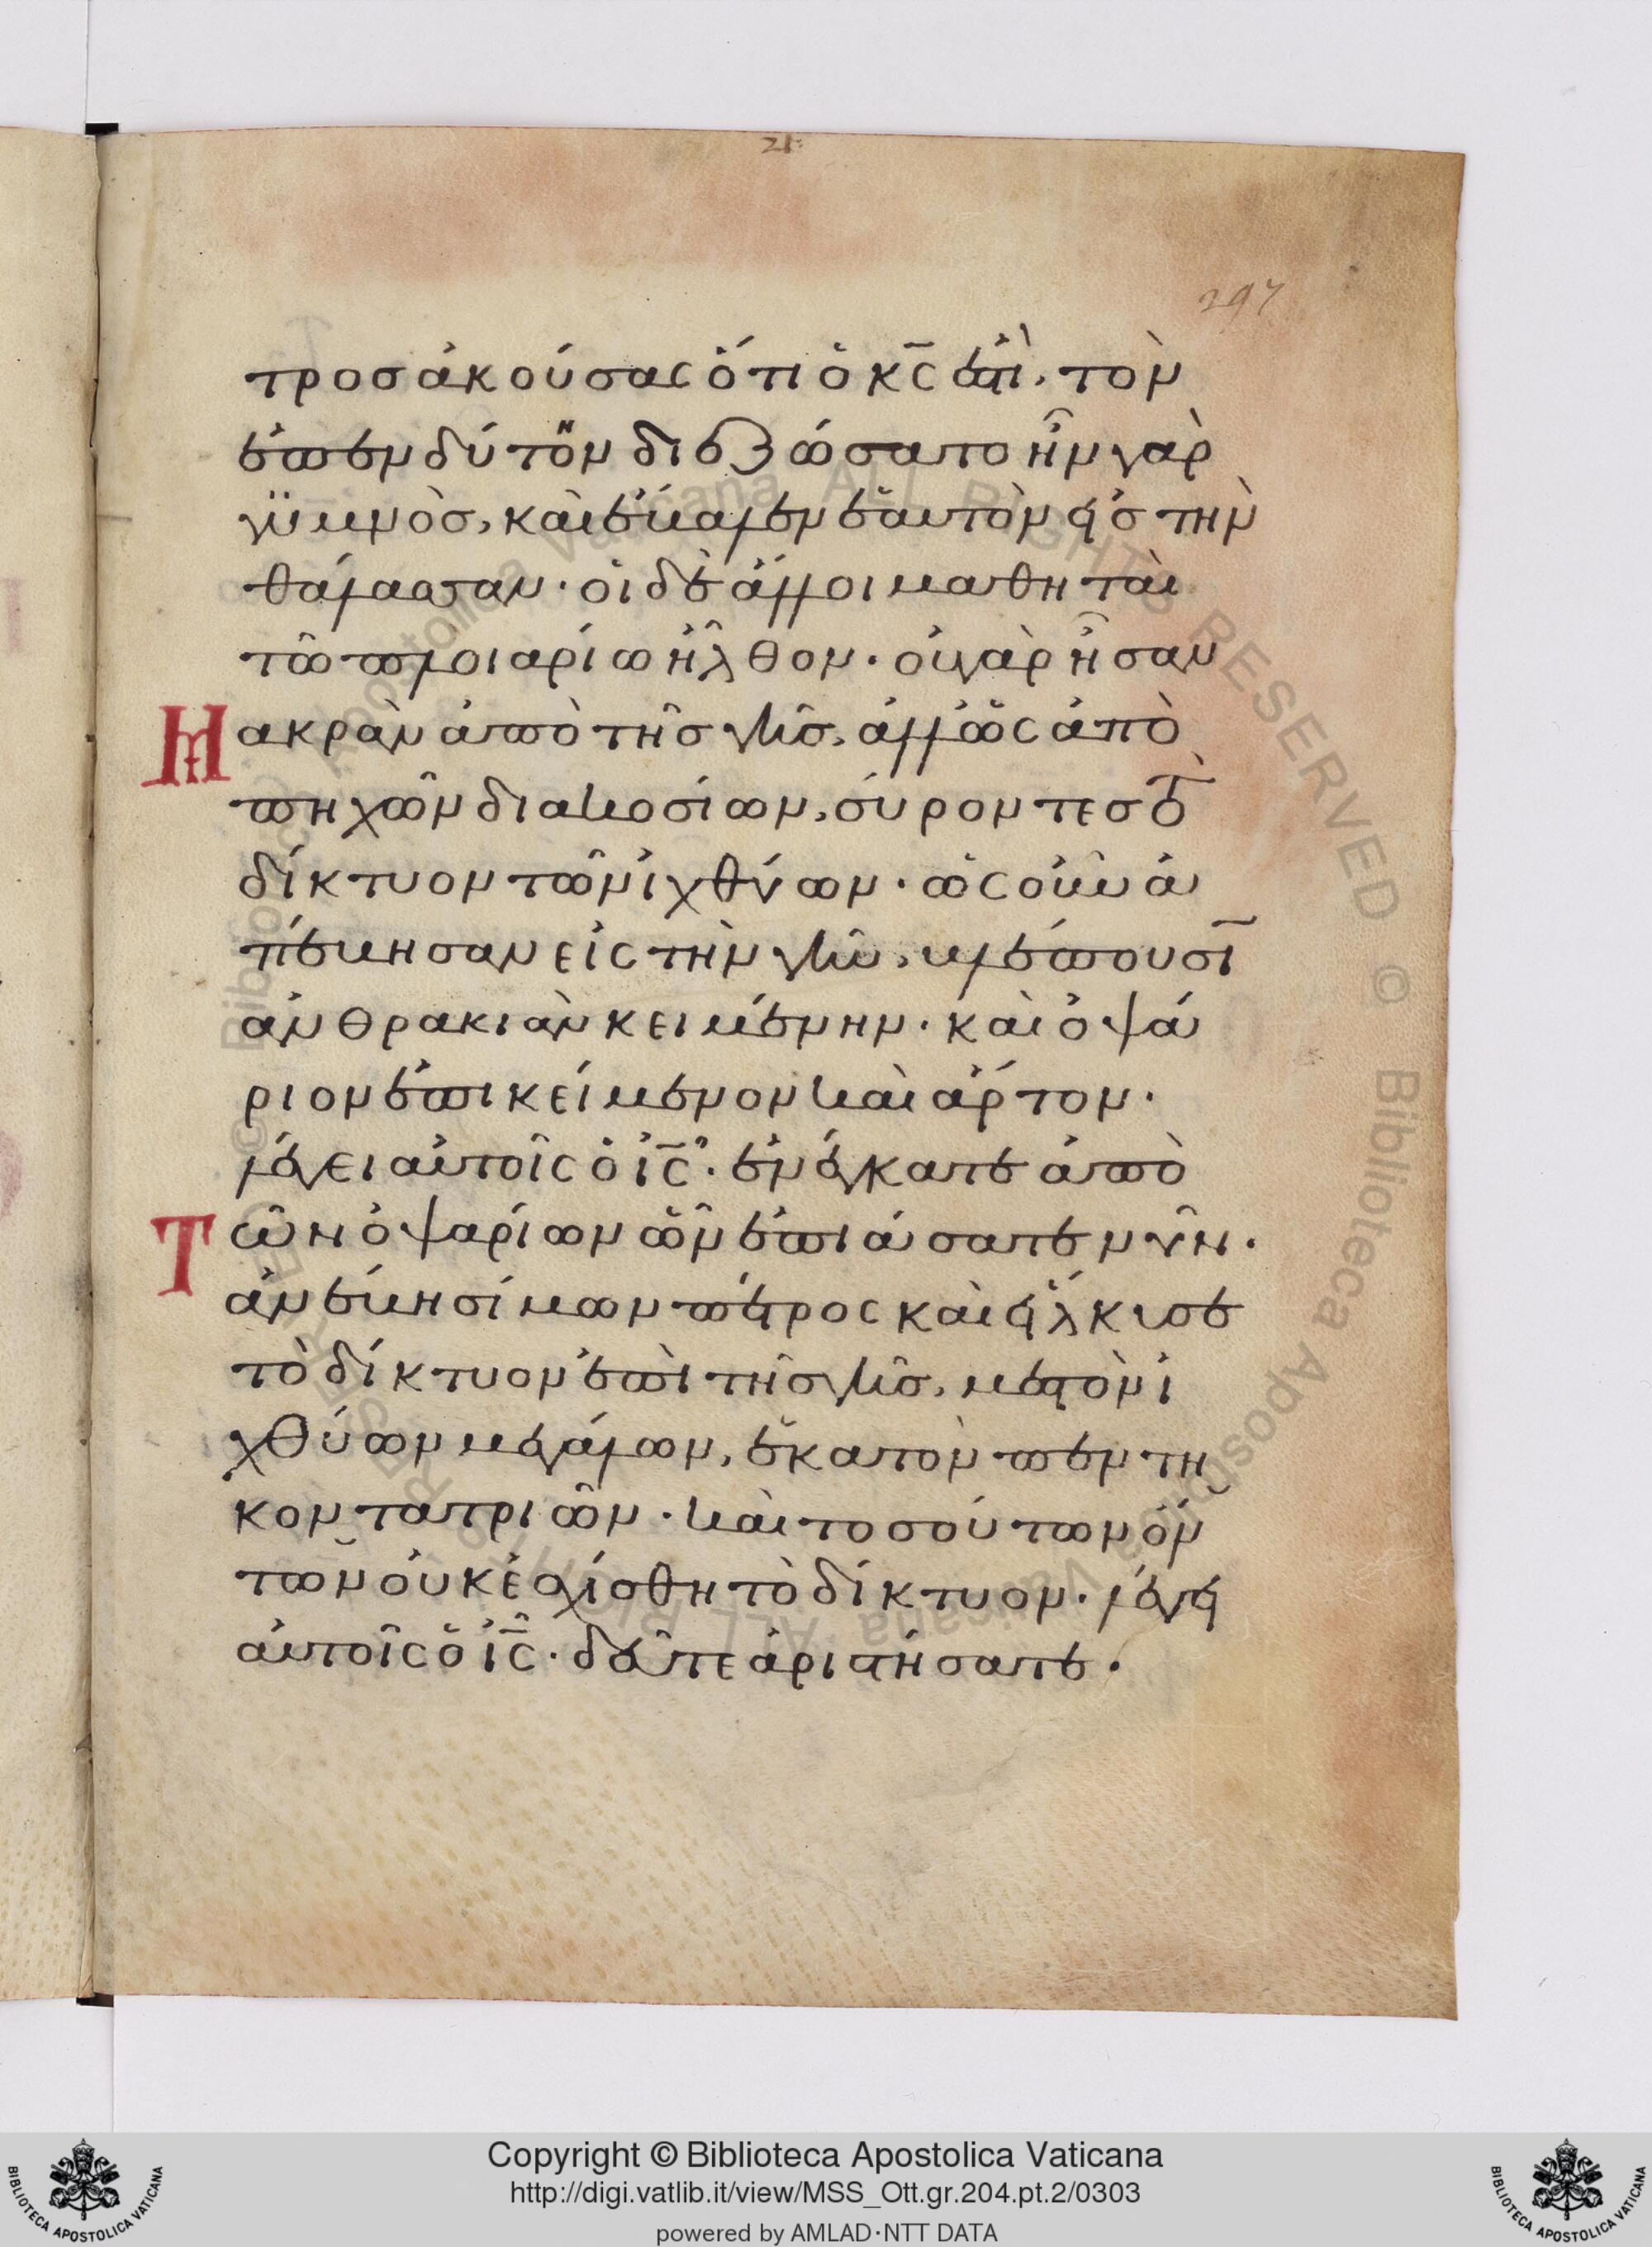 21:
297
τροσ ἀκούσας ὅτι ὁ κ̅ς ἐστὶ, τὸν
ἐπενδύτην διεζώσατο ἦν γὰρ
γϋμνὸσ, καὶ ἔβαλεν ἑαυτὸν εἰσ τὴν
θάλασσαν · οἱ δὲ ἄλλοι μαθηταὶ
τῶ πλοιαρίω ἦλθον · οὐ γὰρ ἦσαν
Μακρὰν ἀπὸ τῆσ γῆσ, ἀλλ ὡς ἀπὸ
πηχῶν διακοσίων, σύροντεσ τὸ
δίκτυον τῶν ἰχθύων · ὡς οὖν ἀ
πέβησαν εἰς τὴν γῆν, βλέπουσῑ
ἀνθρακιὰν κειμένην · καὶ ὀψά
ριον ἐπικείμενον καὶ ἄρτον ·
λέγει αὐτοῖς ὁ ἰ̅ς̅ · ἐνέγκατε ἀπὸ
Τῶν ὀψαρίων ὧν ἐπιάσατε νῦν ·
ἀνέβη σίμων πέτρος καὶ εἵλκυσε
τὸ δίκτυον ἐπὶ τῆσ γῆσ, μεστὸν ἰ
χθύων μεγάλων, ἑκατὸν πεντη
κοντατριῶν · καὶ τοσούτων ὄν
των οὐκ ἐσχίσθη τὸ δίκτυον · λέγει
αὐτοῖς ὁ ἰ̅ς̅ · δεῦτε ἀριστήσατε ·
© Biblioteca Apostolica Vaticana ALL RIGHTS RESERVED © Biblioteca Apostolica Vaticana ALL RIGHTS RESERVED
Copyright © Biblioteca Apostolica Vaticana
http://digi.vatlib.it/view/MSS_Ott.gr.204.pt.2/0303
powered by AMLAD·NTT DATA
BIBLIOTECA APOSTOLICA VATICANA
BIBLIOTECA APOSTOLICA VATICANA